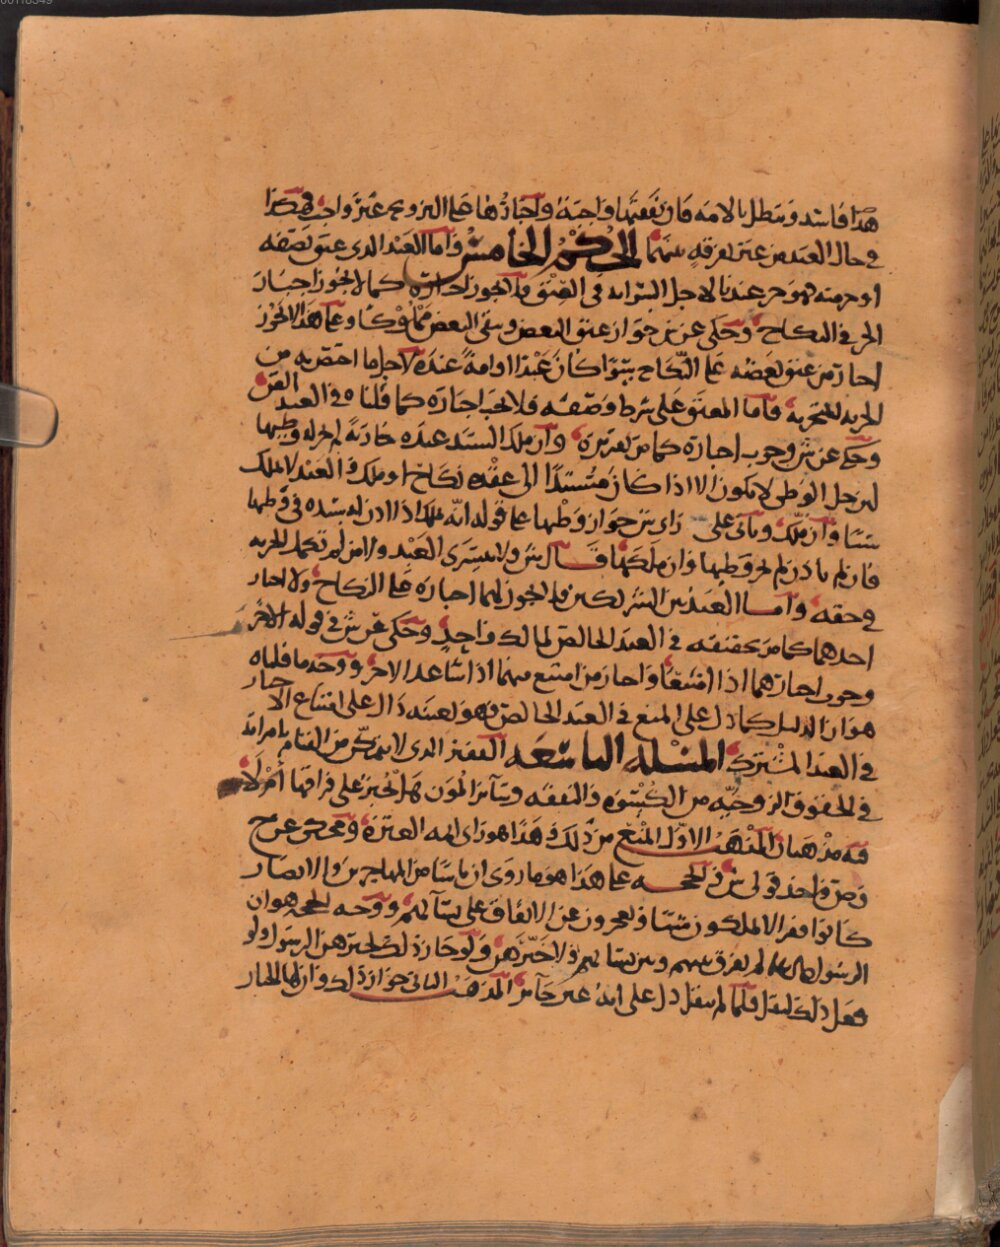 هذا فاسد ويبطل بالامه فان نفقتها واجبة واجبارها على التزويج غير واجب فهكذا
في حال العبد من غير تفرقة بينهما الحكم الخامس واما العبد الذي عتق نصفه
او جزء منه فهو حر عندنا لاجل السرايه في العتق فلا يجوز اجباره كما لا يجوز اجبار
الحر في النكاح وحكى عن ش جواز عتق البعض وبقى البعض مملوكا وعلى هذا لا يجوز
اجبار من عتق بعضه على النكاح سوا كان عبدا او امة عنده لاجل ما اختص به من
الحريه للتجربه فاما المعتق على شرط وصفه فلا يجب اجباره كما قلناه في العبد القن
وحكى عن ش وجوب اجباره كما مر تقريره وان ملك السيد عبده جاريه لم يحل له وطيها
لان حل الوطي لا يكون الا اذا كان مستندا الى عقده نكاح او ملك والعبد لا يملك
شيا وان ملك وياتي على راي ش جواز وطيها على قوله انه يملك اذا اذن له سيده في وطيها
فان لم ياذن لم يحل وطيها وان ملكها قال ش ولا يتسرى العبد ولا من لم تكمل الحريه
في حقه واما العبد بين الشريكين فلا يجوز لهما اجباره على النكاح ولا اجبار
احدهما كما مر تحقيقه في العبد الخالص لمالك واحد وحكى عن ش في قوله الاخر
وجوب اجبارهما اذا امتنعا واجبار من امتنع منهما اذا ساعد الاخر ووجه ما قلناه
هو ان الدليل كما دل على المنع في العبد الخالص فهو بعينه دال على امتناع الاجبار
في العبد المشترك المسئله التاسعه الفقير الذي لا يتمكن من القيام بامراته
في الحقوق الزوجيه من الكسوه والنفقه وسائر المون هل يجبر على فراقها ام لا
فيه مذهبان المذهب الاول المنع من ذلك وهذا هو راي ايمه العتره ومحكى عن ح
وص واحد قولي ش والحجه على هذا هو ما روي ان ناسا من المهاجرين والانصار
كانوا فقرا لا يملكون شيا ويعجزون عن الانفاق على نسائهم ووجه الحجه هو ان
الرسول صلى الله عليه لم يفرق بينهم وبين نسائهم ولا خيرهن ولو جاز ذلك لخيرهن الرسول ولو
فعل ذلك لنقل فلما لم ينقل دل على انه غير جائز المذهب الثاني جواز ذلك وان لها الخيار